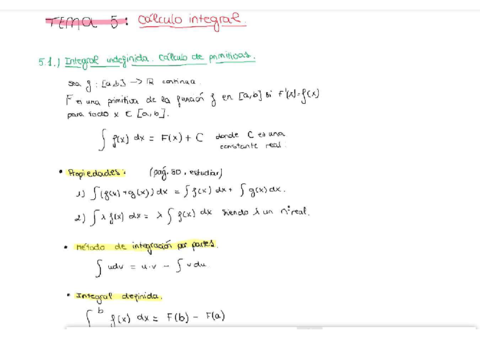 TEMA 5: Cálculo integral.
5.1.) Integral indefinida. Cálculo de primitivas.
Sea f: [a,b] → R continua.
F es una primitiva de la función f en [a,b] si F'(x)=f(x)
para todo x ∈ [a,b].
∫ f(x) dx = F(x) + C donde C es una
constante real.
• Propiedades: (pag. 80, estudiar)
1) ∫(f(x)+g(x)) dx = ∫f(x) dx + ∫g(x) dx.
2) ∫λ f(x) dx = λ ∫ f(x) dx siendo λ un nº real.
• Método de integración por partes
∫ u dv = u·v − ∫ v du.
• Integral definida.
∫ᵇ f(x) dx = F(b) − F(a)